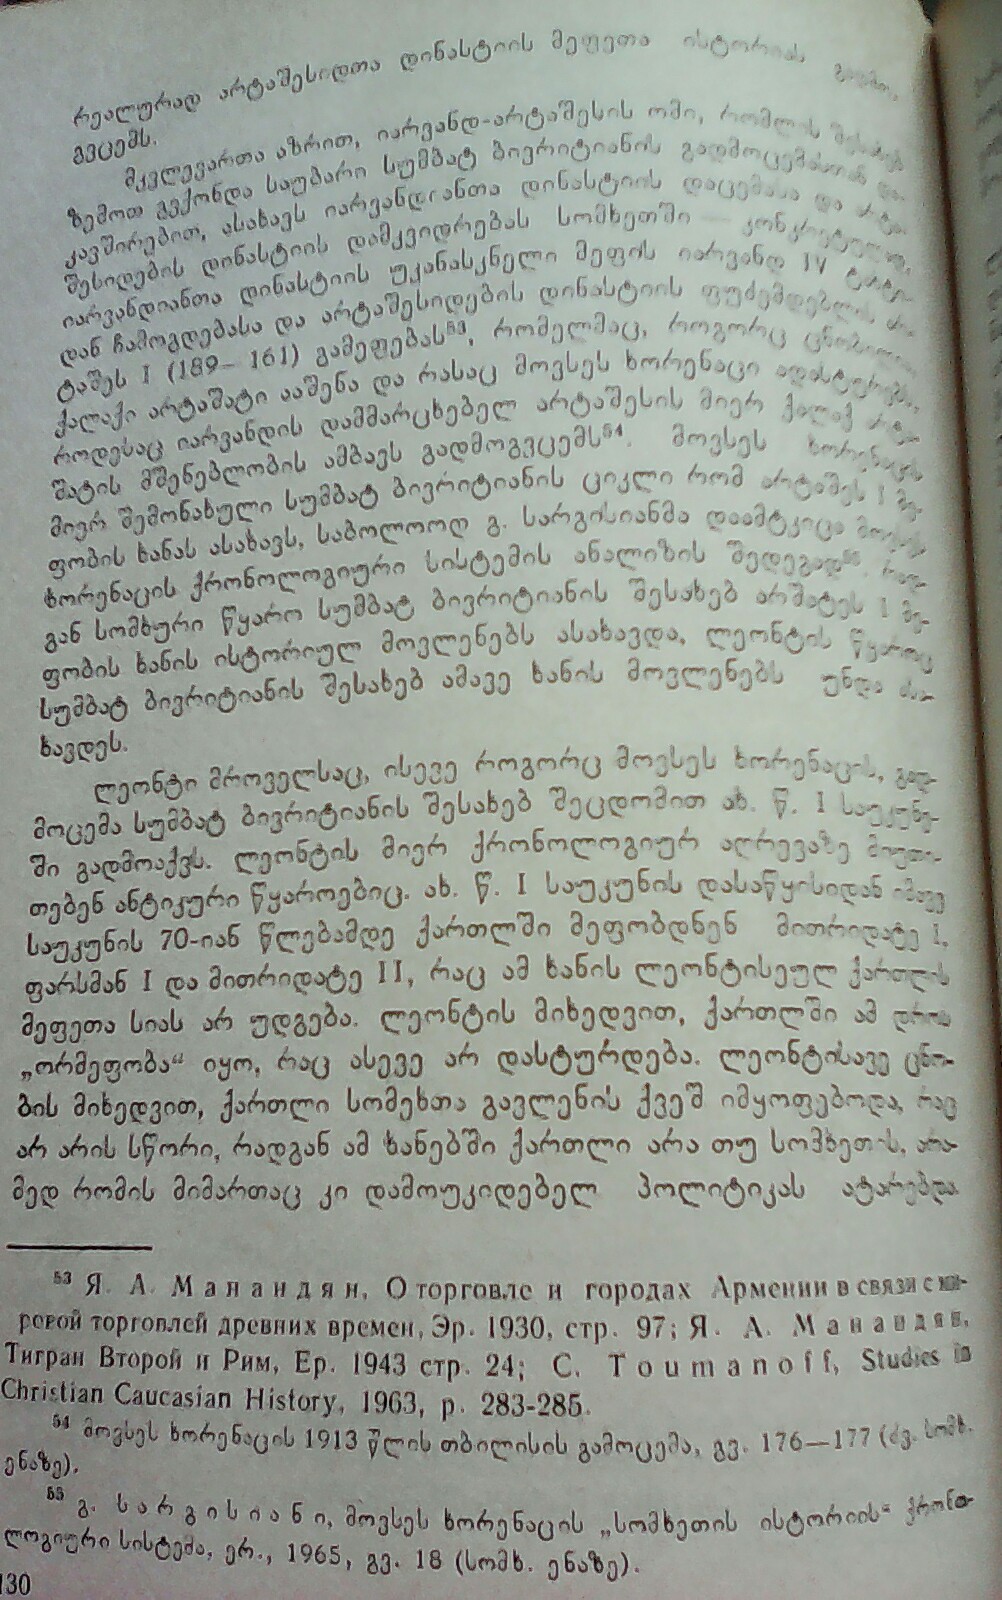 რეალურად არტაშესიდთა დინასტიის მეფეთა ისტორიას გადმო-
გვცემს.
მკვლევართა აზრით, იარვანდ-არტაშესის ომი, რომლის შესახებ
ზემოთ გვქონდა საუბარი სუმბატ ბივრიტიანის გადმოცემასთან და-
კავშირებით, ასახავს იარვანდიანთა დინასტიის დაცემასა და არტა-
შესიდების დინასტიის დამკვიდრებას სომხეთში — კონკრეტულად,
იარვანდიანთა დინასტიის უკანასკნელი მეფის იარვანდ IV ტახტი-
დან ჩამოგდებასა და არტაშესიდების დინასტიის ფუძემდებლის არ-
ტაშეს I (189—161) გამეფებას⁵³, რომელმაც, როგორც ცნობილია,
ქალაქი არტაშატი ააშენა და რასაც მოვსეს ხორენაცი ადასტურებს,
როდესაც იარვანდის დამმარცხებელ არტაშესის მიერ ქალაქ არტა-
შატის მშენებლობის ამბავს გადმოგვცემს⁵⁴. მოვსეს ხორენაცის
მიერ შემონახული სუმბატ ბივრიტიანის ციკლი რომ არტაშეს I მე-
ფობის ხანას ასახავს, საბოლოოდ გ. სარგისიანმა დაამტკიცა მოვსეს
ხორენაცის ქრონოლოგიური სისტემის ანალიზის შედეგად⁵⁵. რად-
გან სომხური წყარო სუმბატ ბივრიტიანის შესახებ არშატეს I მე-
ფობის ხანის ისტორიულ მოვლენებს ასახავდა, ლეონტის წყაროც
სუმბატ ბივრიტიანის შესახებ ამავე ხანის მოვლენებს უნდა ასა-
ხავდეს.
ლეონტი მროველსაც, ისევე როგორც მოვსეს ხორენაცის, გად-
მოცემა სუმბატ ბივრიტიანის შესახებ შეცდომით ახ. წ. I საუკუნე-
ში გადმოაქვს. ლეონტის მიერ ქრონოლოგიურ აღრევაზე მიუთი-
თებენ ანტიკური წყაროებიც. ახ. წ. I საუკუნის დასაწყისიდან იმავე
საუკუნის 70-იან წლებამდე ქართლში მეფობდნენ მითრიდატე I,
ფარსმან I და მითრიდატე II, რაც ამ ხანის ლეონტისეულ ქართლის
მეფეთა სიას არ უდგება. ლეონტის მიხედვით, ქართლში ამ დროს
„ორმეფობა“ იყო, რაც ასევე არ დასტურდება. ლეონტისავე ცნო-
ბის მიხედვით, ქართლი სომეხთა გავლენის ქვეშ იმყოფებოდა, რაც
არ არის სწორი, რადგან ამ ხანებში ქართლი არა თუ სომხეთის, არა-
მედ რომის მიმართაც კი დამოუკიდებელ პოლიტიკას ატარებდა.
⁵³ Я. А. Манандян, О торговле и городах Армении в связи с ми-
ровой торговлей древних времен, Эр. 1930, стр. 97; Я. А. Манандян,
Тигран Второй и Рим, Ер. 1943 стр. 24; C. Toumanoff, Studies in
Christian Caucasian History, 1963, p. 283-285.
⁵⁴ მოვსეს ხორენაცის 1913 წლის თბილისის გამოცემა, გვ. 176—177 (ძვ. სომხ.
ენაზე).
⁵⁵ გ. სარგისიანი, მოვსეს ხორენაცის „სომხეთის ისტორიის“ ქრონო-
ლოგიური სისტემა, ერ., 1965, გვ. 18 (სომხ. ენაზე).
130